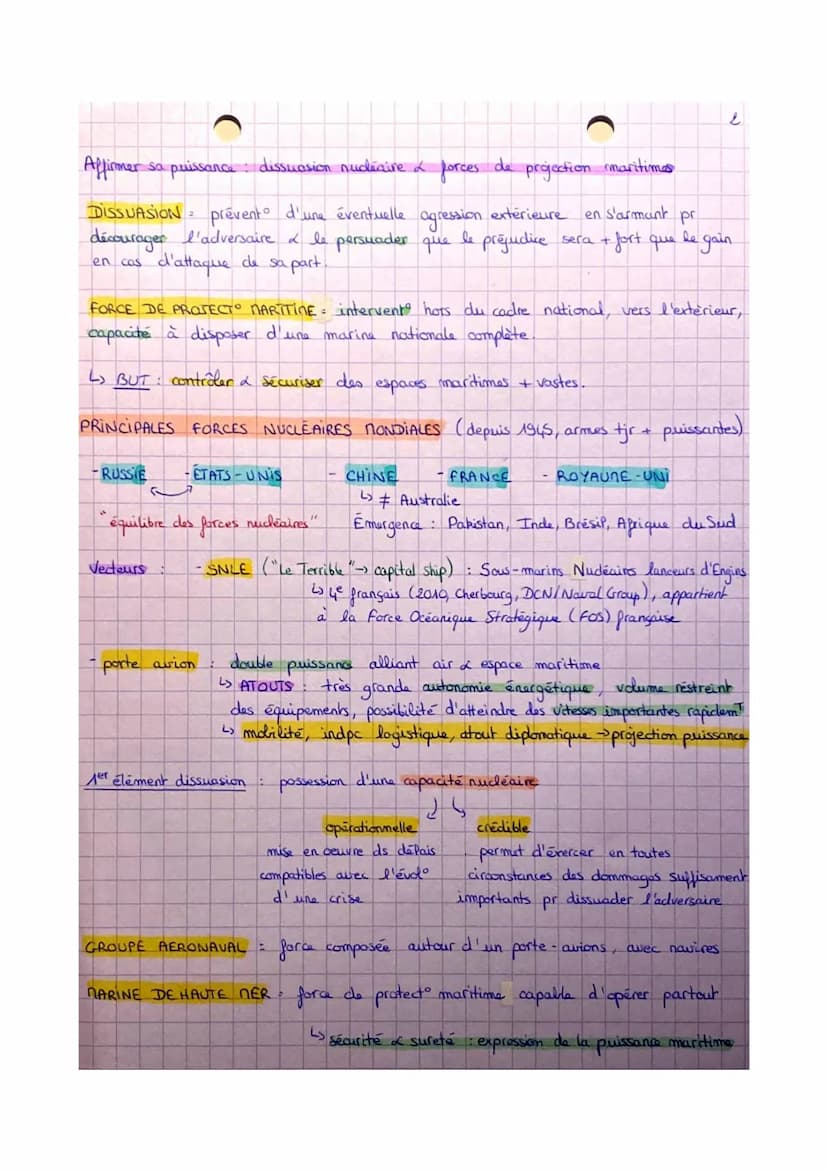 2
Affirmer sa puissance : dissuasion nucléaire & forces de projection maritimes
DISSUASION = prévent° d'une éventuelle agression extérieure en s'armant pr
décourager l'adversaire & le persuader que le préjudice sera + fort que le gain
en cas d'attaque de sa part.
FORCE DE PROJECT° MARITIME = intervent° hors du cadre national, vers l'extérieur,
capacité à disposer d'une marine nationale complète.
↳ BUT : contrôler & sécuriser des espaces maritimes + vastes.
PRINCIPALES FORCES NUCLÉAIRES MONDIALES (depuis 1945, armes tjr + puissantes)
- RUSSIE - ÉTATS-UNIS - CHINE - FRANCE - ROYAUME-UNI
↳ ≠ Australie
"équilibre des forces nucléaires" Émergence : Pakistan, Inde, Brésil, Afrique du Sud
Vecteurs : - SNLE ("Le Terrible" → capital ship) : Sous-marins Nucléaires lanceurs d'Engins
↳ 4e français (2010, Cherbourg, DCN/Naval Group), appartient
à la Force Océanique Stratégique (FOS) française
- porte avion : double puissance alliant air & espace maritime
↳ ATOUTS : très grande autonomie énergétique, volume restreint
des équipements, possibilité d'atteindre des vitesses importantes rapidemT
↳ mobilité, indpc logistique, atout diplomatique → projection puissance
1er élément dissuasion : possession d'une capacité nucléaire
opérationnelle crédible
mise en oeuvre ds délais permet d'exercer en toutes
compatibles avec l'évol° circonstances des dommages suffisament
d'une crise importants pr dissuader l'adversaire
GROUPE AERONAVAL = force composée autour d'un porte-avions, avec navires
MARINE DE HAUTE MER = force de protect° maritime capable d'opérer partout
↳ sécurité & sureté : expression de la puissance maritime